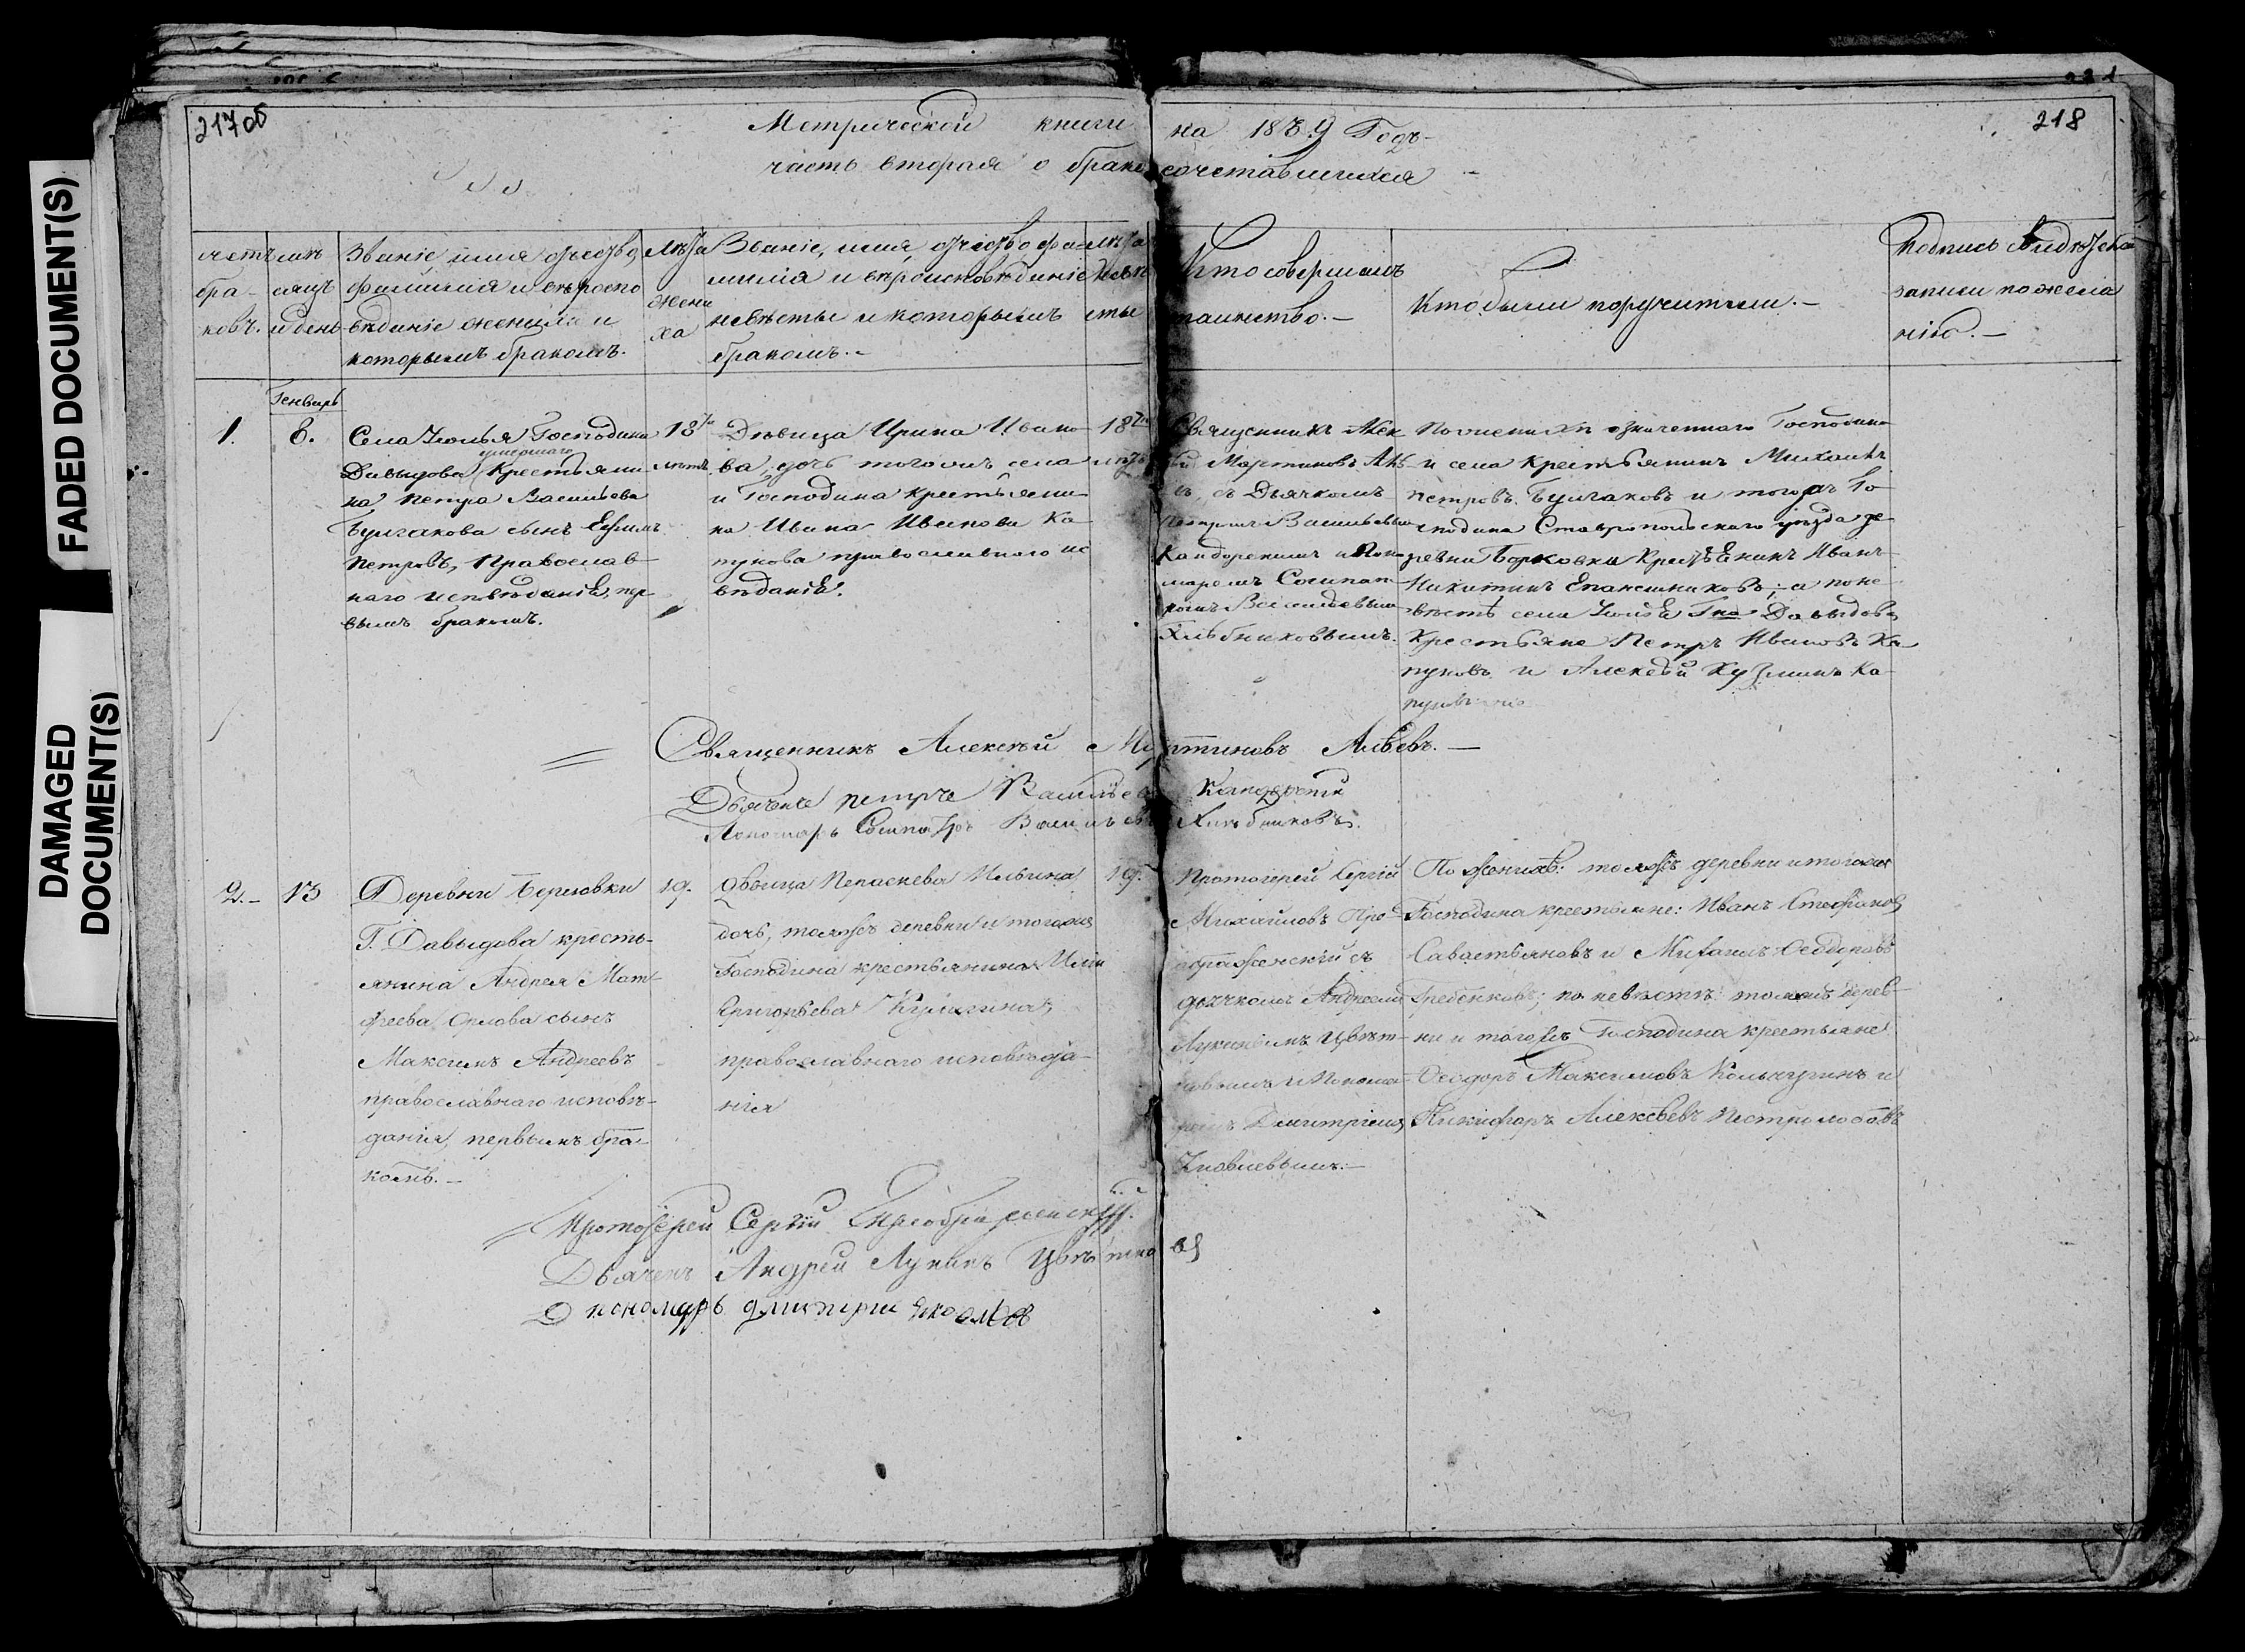 FADED DOCUMENT(S)
DAMAGED DOCUMENT(S)
217об
218
Метрической книги на 18 9 Годъ
часть вторая о бракосочетавшихся
бра-
ковъ.
и день
Званіе имя отчество,
фамилія и вѣроиспо
вѣданіе жениха и
которымъ бракомъ.
Лѣта
жени
ха
Званіе, имя, отчество фа-
милія и вѣроисповѣданіе
невѣсты и которымъ
бракомъ.
Лѣта
невѣ
сты
Кто совершалъ
таинство.
Кто были поручители.
Подпись
записи по жела
нію.
Генварь
1.
8.
Села Господина
умершаго
Давыдова Крестьяни
на Петра Васильева
Булгакова сынъ Ефимъ
Петровъ, Православ
наго исповѣданія, пер
вымъ бракомъ.
18
лѣтъ
Дѣвица Ирина Ивано
ва, дочь тогожъ села
и Господина крестьяни
на Ивана Иванова Ка
пукова православнаго ис
вѣданія.
18
лѣтъ
Священникъ Алек
Мартиновъ
съ Дьячкомъ
Петромъ Васильевымъ
и Поно
маремъ Сосипат
ромъ Васильевымъ
Хлѣбниковымъ.
По женихѣ означеннаго Господина
и села Крестьянинъ Михаилъ
Петровъ Булгаковъ и тогожъ Го
сподина Ставропольскаго уѣзда де
ревни Борковки Крестьянинъ Иванъ
Никитинъ Епанешниковъ; а по не
вѣстѣ села Гна Давыдова
Крестьяне Петръ Ивановъ Ка
пуковъ и Алексѣй Кузминъ Ка
пуковъ
Священникъ Алексѣй Мартиновъ
Дьячекъ Петръ Васильевъ
Пономарь Сосипатръ Васильевъ Хлѣбниковъ.
2.
13
Деревни Березовки
Г. Давыдова кресть-
янина Андрея Мат-
феева Орлова сынъ
Максимъ Андреевъ
православнаго исповѣ-
данія, первымъ бра-
комъ.
19.
Дѣвица Параскева Ильина
дочь, тояжъ деревни и тогожъ
Господина крестьянина Иліи
Григорьева
православнаго исповѣда-
нія
19.
Протоіерей Сергій
Михайловъ Пре-
ображенскій съ
дьячкомъ Андреемъ
Лукинымъ Цвѣт-
ковымъ и Понома-
ремъ Димитріемъ
По женихѣ: тояжъ деревни и тогожъ
Господина крестьяне: Иванъ Стефановъ
Савастьяновъ и Михаилъ Феодоровъ
Гребенковъ; по невѣстѣ: тояжъ дерев-
ни и тогожъ Господина крестьяне
Феодоръ Максимовъ и
Никифоръ Алексѣевъ
Протоіерей Сергій Преображенскій.
Дьячекъ Андрей Лукинъ Цвѣтковъ
Пономарь Дмитрий